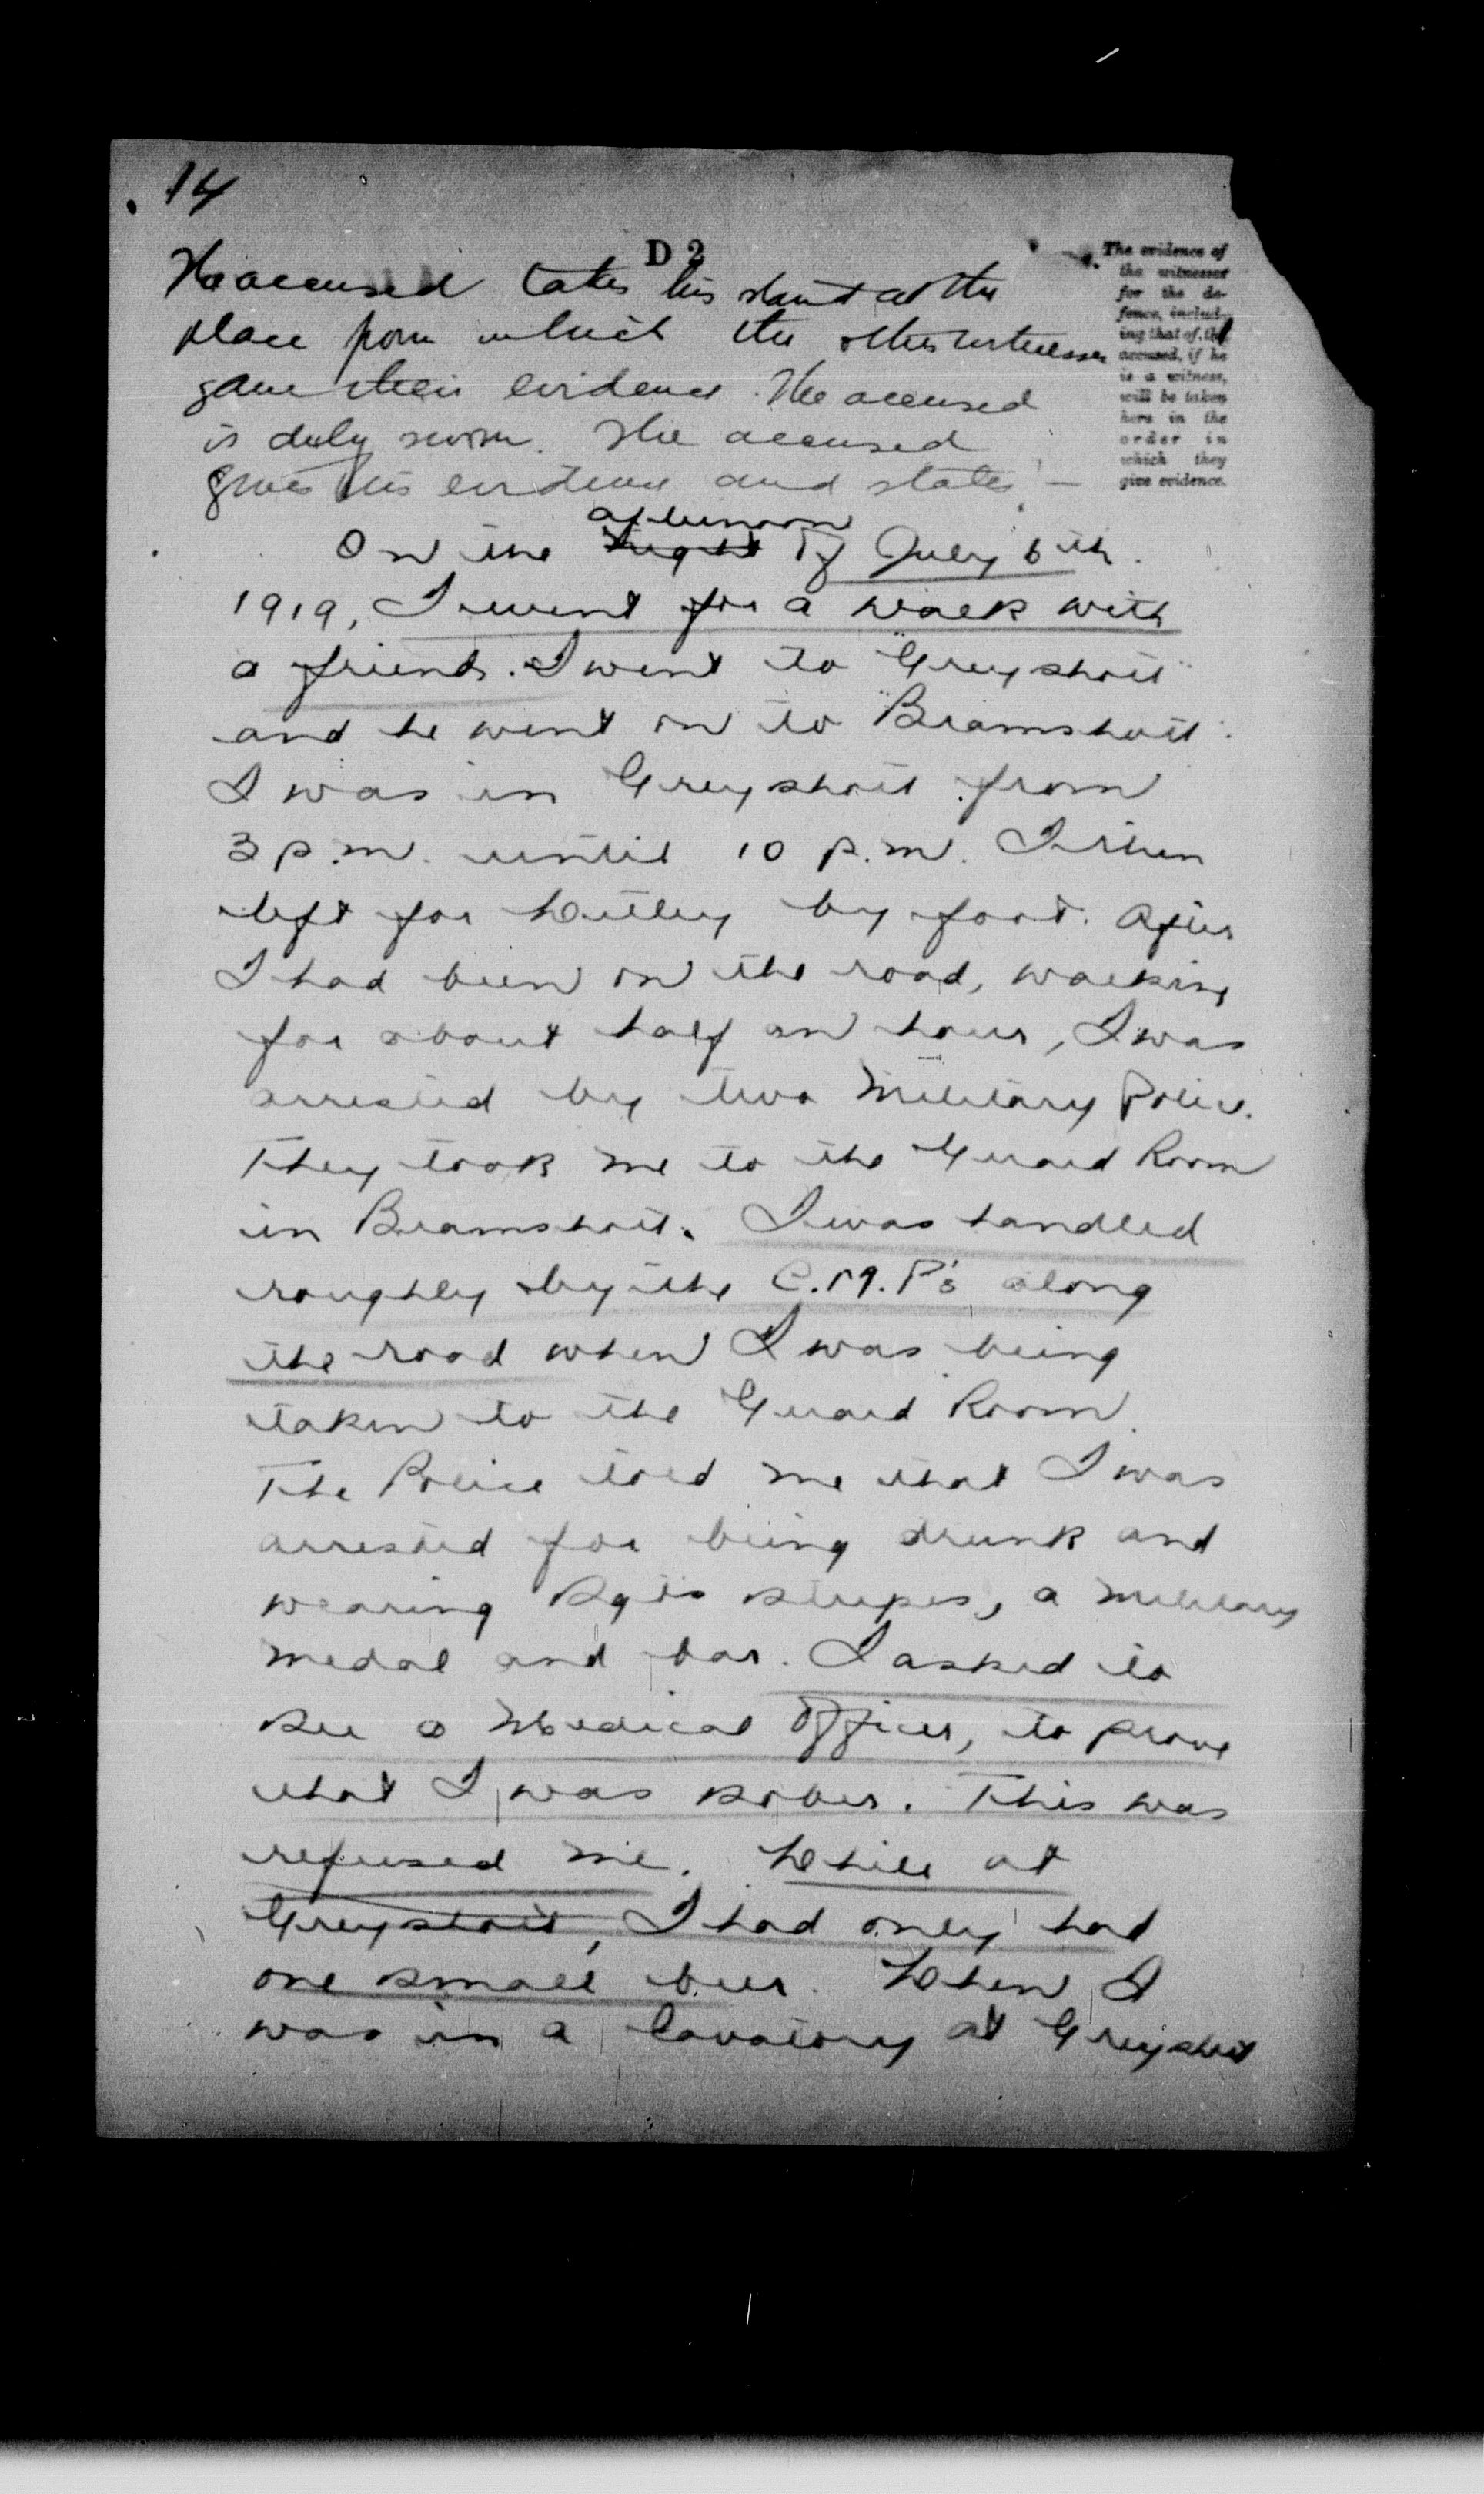 14
D 2
The accused takes his stand at the
place from which the other witnesses
gave their evidence. The accused
is duly sworn. The accused
gives his evidence and states: —
The evidence of
the witnesses
for the de-
fence, includ-
ing that of the
accused, if he
is a witness,
will be taken
here in the
order in
which they
give evidence.
afternoon
On the night of July 6th.
1919, I went for a walk with
a friend. I went to "Greyshott"
and he went on to "Bramshott".
I was in Greyshott from
3 p.m. until 10 p.m. I then
left for Witley by foot. After
I had been on the road, walking
for about half an hour, I was
arrested by two Military Police.
They took me to the Guard Room
in Bramshott. I was handled
roughly by the C.M.P's along
the road when I was being
taken to the Guard Room.
The Police told me that I was
arrested for being drunk and
wearing Sgts stripes, a military
medal and bar. I asked to
see a Medical Officer, to prove
that I was sober. This was
refused me. While at
Greyshott, I had only had
one small beer. When I
was in a lavatory at Greyshott